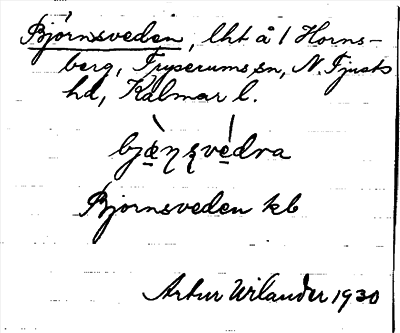 Björnsveden, lht å 1 Horns-
berg, Tryserums sn, N. Tjusts
hd, Kalmar l.
bjæ̀ɳʂvédra
Björnsveden kb
Artur Wilander 1930